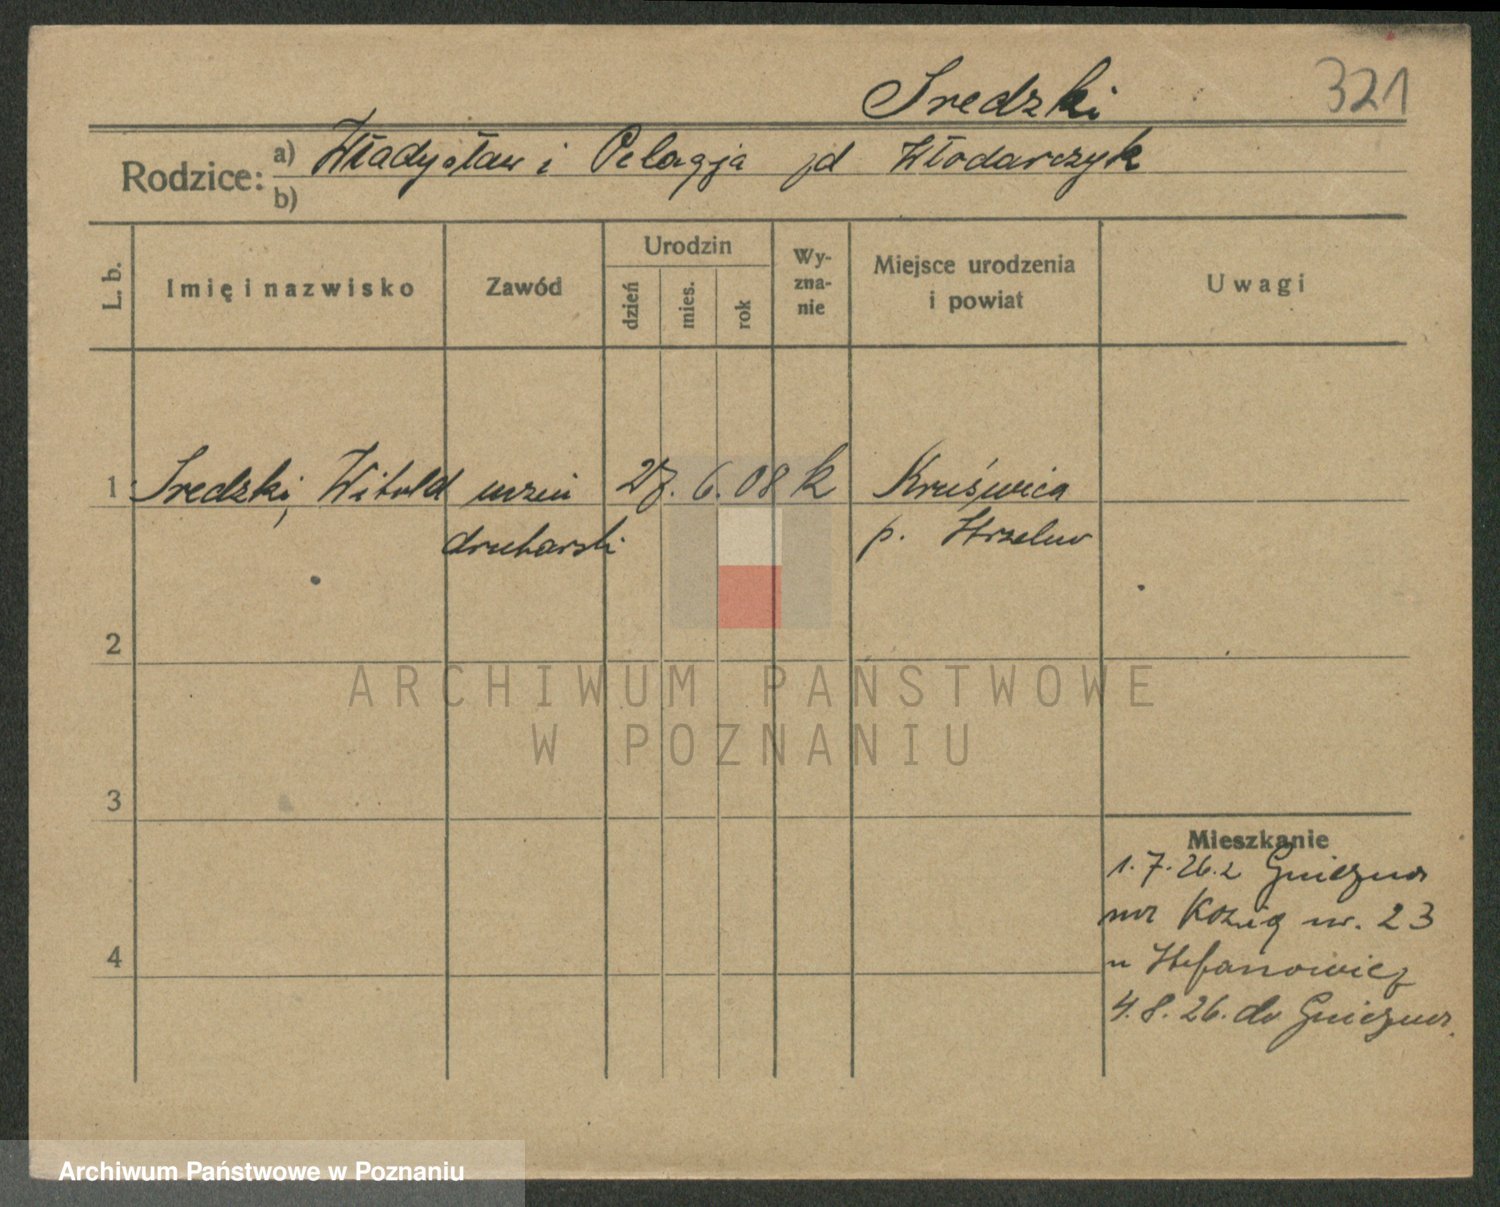 Sredzki
321
Rodzice: a) Władysław i Pelagja zd Włodarczyk
b)
L. b.
Imię i nazwisko
Zawód
Urodzin
dzień
mies.
rok
Wy-
zna-
nie
Miejsce urodzenia
i powiat
Uwagi
1 Sredzki, Witold uczeń 27. 6. 08 k Kruświca
drukarski p. Strzelno
2
3
4
Mieszkanie
1. 7. 26. z Gniezna
na nr. 23
u Stefanowicz
4. 8. 26. do Gniezna.
ARCHIWUM PAŃSTWOWE
W POZNANIU
Archiwum Państwowe w Poznaniu